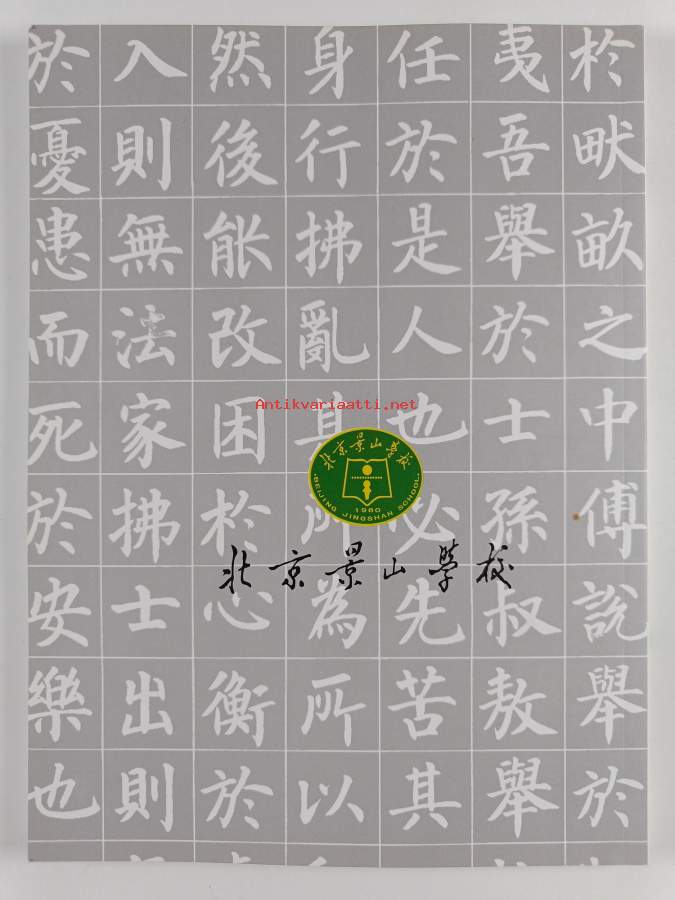 於畎畝之中傅說舉於
夷吾舉於士孫叔敖舉
任於是人也必先苦其
身行拂亂其所為所以
然後能改困於心衡於
入則無法家拂士出則
於憂患而死於安樂也
Antikvariaatti.net
北京景山學校
·BEIJING JINGSHAN SCHOOL·
1960
北京景山學校